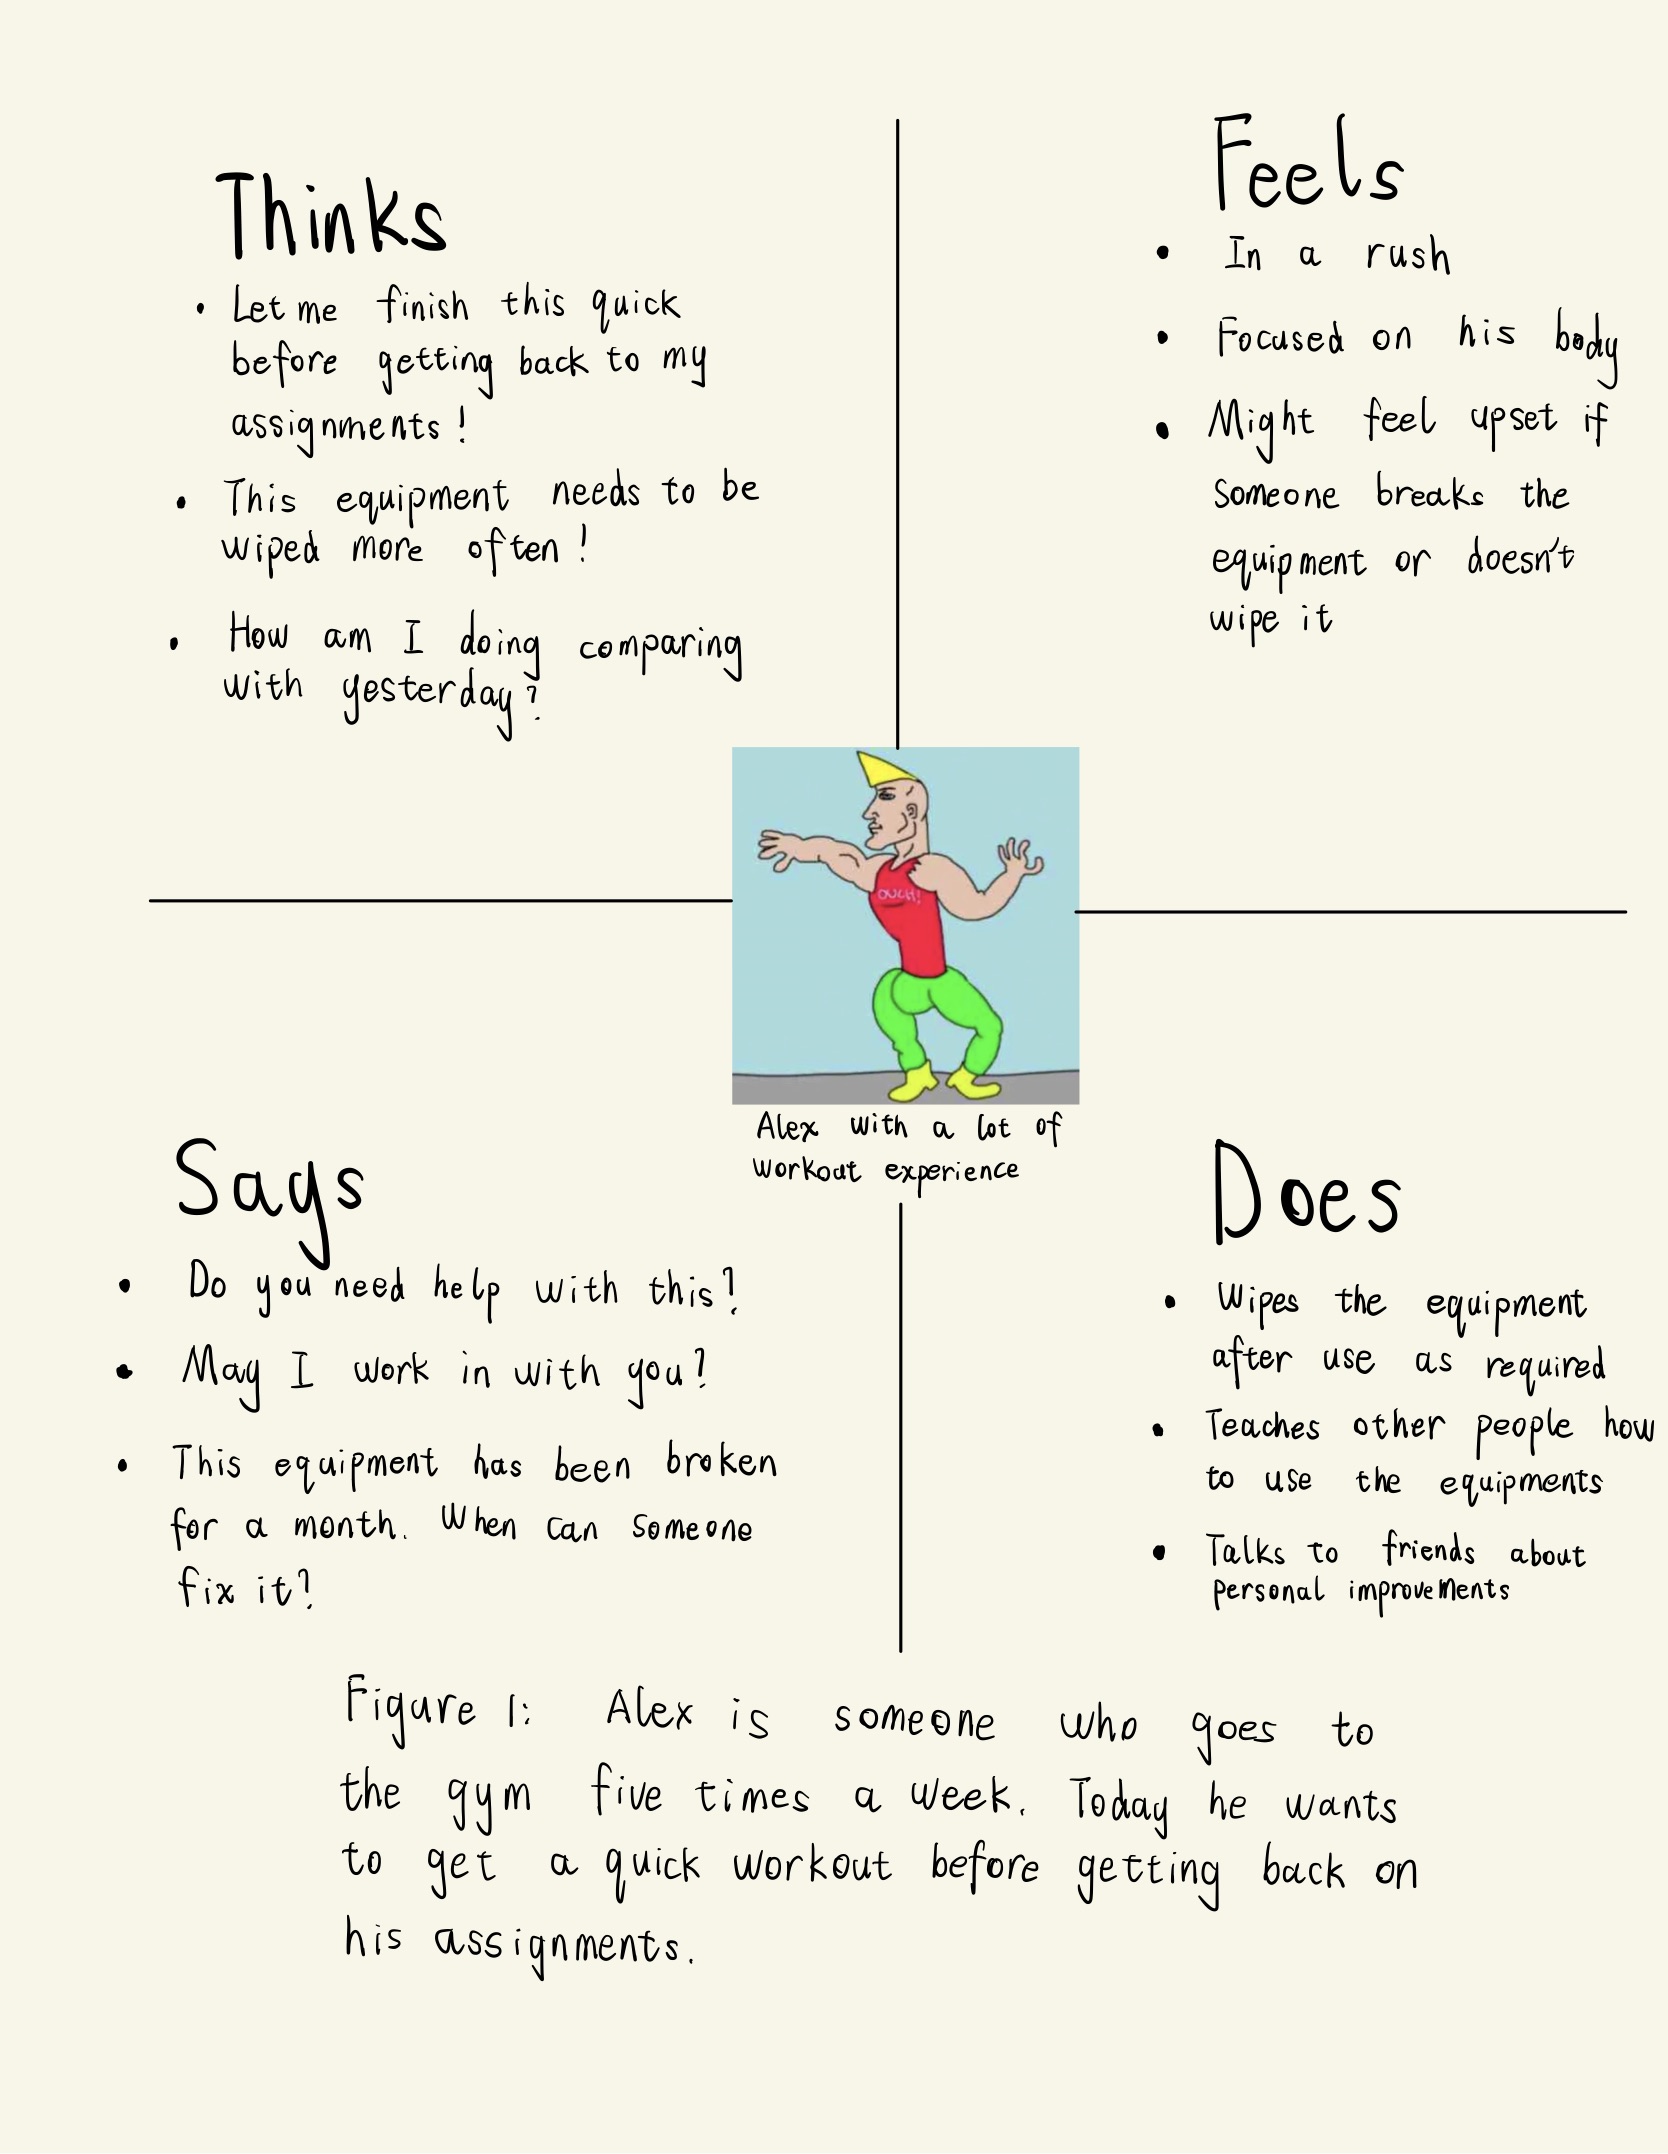 Thinks
• Let me finish this quick
before getting back to my
assignments!
• This equipment needs to be
wiped more often!
• How am I doing comparing
with yesterday?
Feels
• In a rush
• Focused on his body
• Might feel upset if
someone breaks the
equipment or doesn't
wipe it
OUCH!
Alex with a lot of
workout experience
Says
• Do you need help with this?
• May I work in with you?
• This equipment has been broken
for a month. When can someone
fix it?
Does
• Wipes the equipment
after use as required
• Teaches other people how
to use the equipments
• Talks to friends about
personal improvements
Figure 1: Alex is someone who goes to
the gym five times a week. Today he wants
to get a quick workout before getting back on
his assignments.